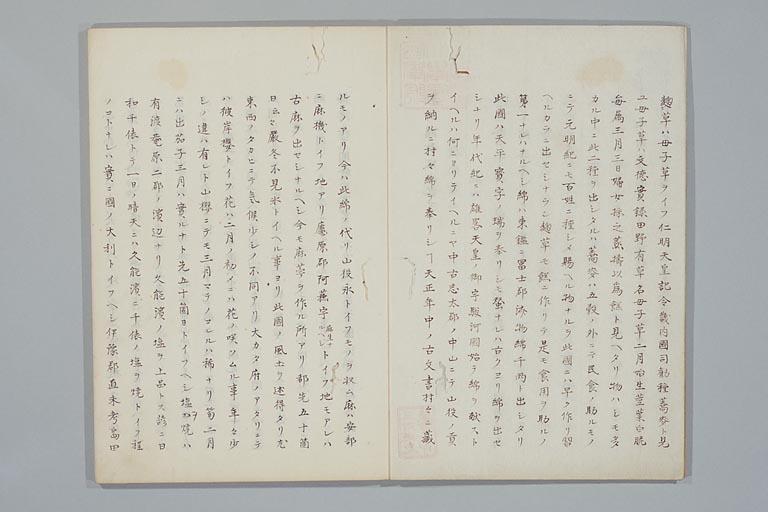 麹草ハ母子草ヲイフ仁明天皇記令畿内國司勧種蕎麥ト見
ユ母子草ハ文徳實録田野有草名母子草二月始生莖葉白脆
毎属三月三日婦女採之蒸擣以爲餻ト見ヘタリ物ハシモ多
カル中ニ此二種ヲ出シタルハ蕎麥ハ五穀ノ外ニテ民食ノ助ルモノ
ニテ元明紀ニモ百姓ニ種シメ賜ヘル物ナルヲ此國ニハ早ク作リ習
ヘルカラニ出セシナラン麹草モ餻ニ作リテ是モ食用ヲ助ルノ
第一ナレハナルヘシ綿ハ東鑑ニ冨士郡済物綿千両ト出シタリ
此國ハ天平寳字ノ瑞ヲ奉リシモ蚕ナレハ古クヨリ綿ヲ出セ
シナリ年代紀ニハ雄畧天皇ノ御宇駿河國始テ綿ヲ献スト
イヘルハ何ニヨリテイヘルニヤ中古志太郡ノ中山ニテ山役ノ貢
ヲ納ルニ村々綿ヲ奉リシヿ天正年中ノ古文書村々ニ藏
ルモノアリ今ハ此綿ノ代リ山役永トイフモノヲ収ム麻ハ安部
ニ麻機トイフ地アリ廬原郡阿蕪字トイフ地モアレハ
古麻ヲ出セシナルヘシ今モ麻苧ヲ作ル所アリ都先五十箇
日云々嚴冬不見氷トイヘル事ヨリ此國ノ風土ヲ述得タリ尤
東西ノタカヒニテ気候少シノ不同アリ大カタ府ノアタリニテ
ハ彼岸櫻トイフ花ハ二月ノ初メニハ花ノ咲ソムル事年々少
シノ違ハ有レト山櫻ニテモ三月マテノコレルハ稀ナリ筍二月
ニハ出茄子三月ハ實ルナト先五十箇日トイフヘシ塩ヲ焼ハ
有渡菴原二郡ノ濱辺ナリ久能濱ノ塩ヲ上品トス諺ニ日
和千俵トテ一日ノ晴天ニハ久能濱ニ千俵ノ塩ヲ焼トイフ程
ノコトナレハ實ニ國ノ大利トイフヘシ伊豫郡直未考島田